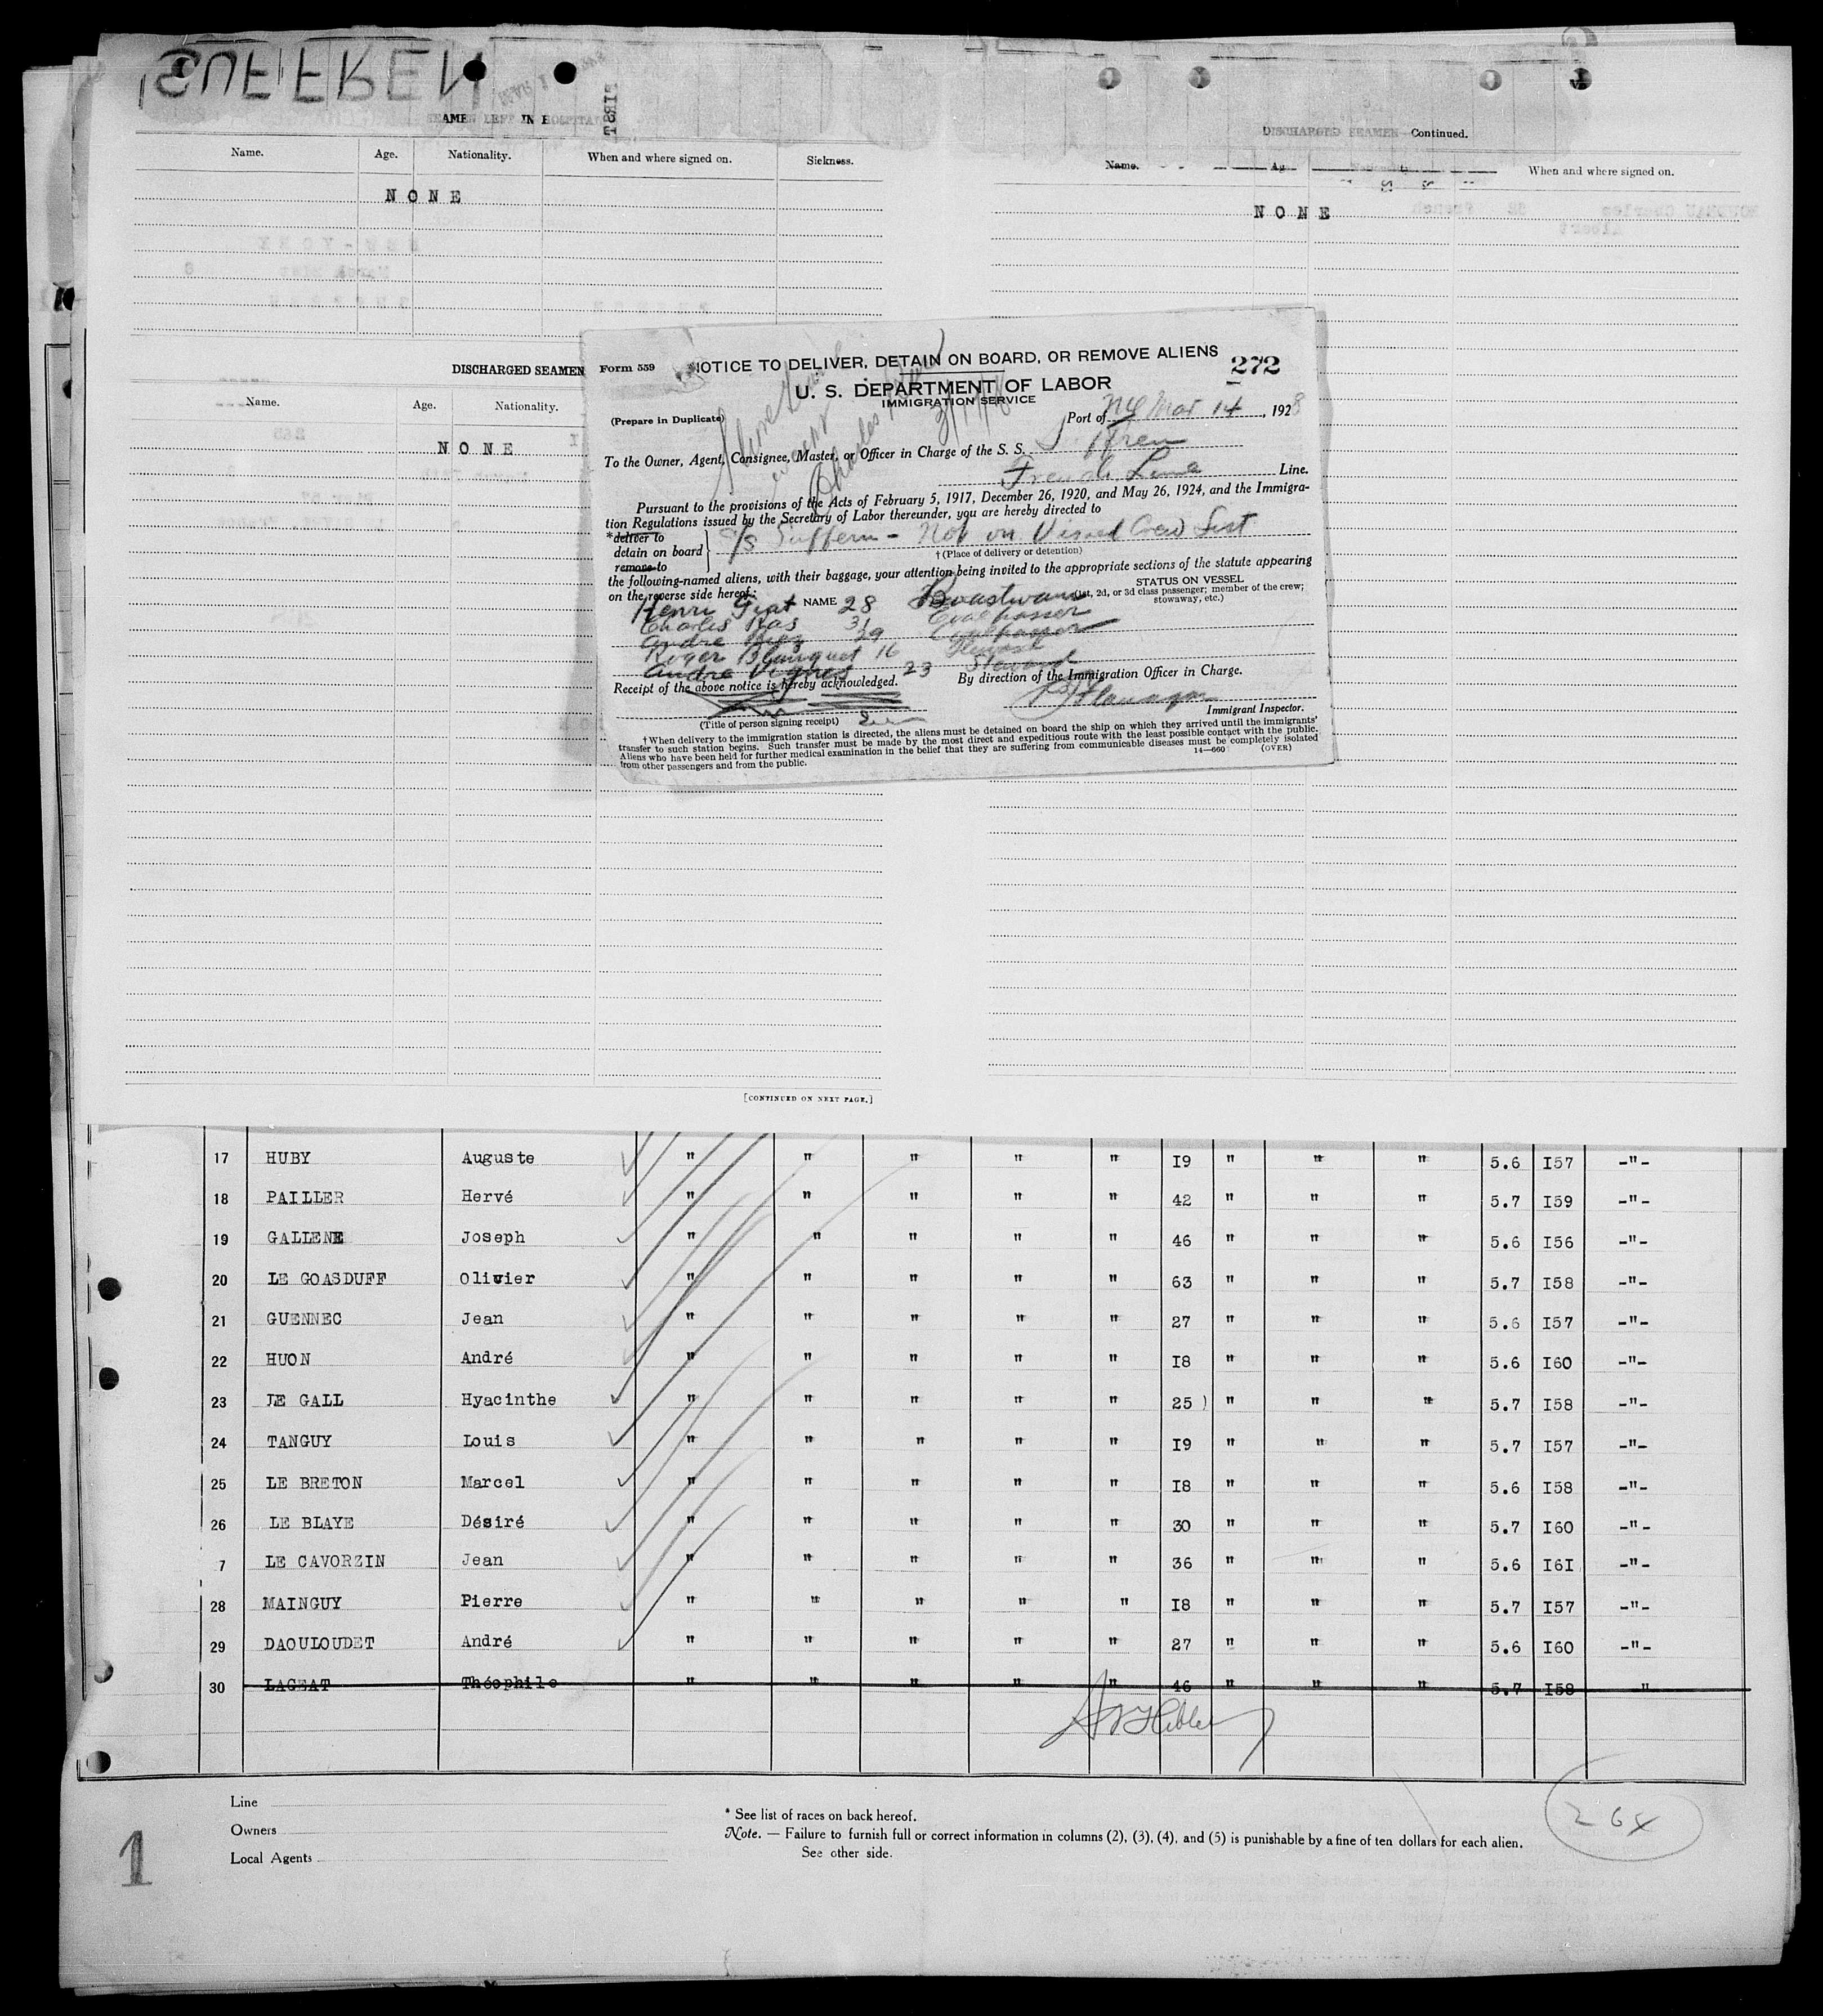 SUFFREN
SEAMEN LEFT IN HOSPITAL
Name. Age. Nationality. When and where signed on. Sickness.
NONE
DISCHARGED SEAMEN
Name. Age. Nationality.
NONE
DISCHARGED SEAMEN—Continued.
Name. Nationality. When and where signed on.
NONE
Form 559 NOTICE TO DELIVER, DETAIN ON BOARD, OR REMOVE ALIENS 272
U. S. DEPARTMENT OF LABOR
IMMIGRATION SERVICE
(Prepare in Duplicate) Port of NY Mar 14, 1928
To the Owner, Agent, Consignee, Master, or Officer in Charge of the S. S.
French Line Line.
Pursuant to the provisions of the Acts of February 5, 1917, December 26, 1920, and May 26, 1924, and the Immigra-
tion Regulations issued by the Secretary of Labor thereunder, you are hereby directed to
*deliver to
detain on board S/S Suffern - Not on Visaed Crew List
remove to
†(Place of delivery or detention)
the following-named aliens, with their baggage, your attention being invited to the appropriate sections of the statute appearing
on the reverse side hereof:
NAME STATUS ON VESSEL
(1st, 2d, or 3d class passenger; member of the crew; stowaway, etc.)
Henri 28 Boastwain
Charles 31 Coalpasser
Andre 29 Coalpasser
Roger 16
Andre Vignes 23 Steward
Receipt of the above notice is hereby acknowledged. By direction of the Immigration Officer in Charge.
Flanagan
Immigrant Inspector.
(Title of person signing receipt)
†When delivery to the immigration station is directed, the aliens must be detained on board the ship on which they arrived until the immigrants'
transfer to such station begins. Such transfer must be made by the most direct and expeditious route with the least possible contact with the public.
Aliens who have been held for further medical examination in the belief that they are suffering from communicable diseases must be completely isolated
from other passengers and from the public. 14—660 (OVER)
[CONTINUED ON NEXT PAGE.]
17 HUBY Auguste " " " " " I9 " " " 5.6 I57 -"-
18 PAILLER Hervé " " " " " 42 " " " 5.7 I59 -"-
19 GALLENE Joseph " " " " " 46 " " " 5.6 I56 -"-
20 LE GOASDUFF Olivier " " " " " 63 " " " 5.7 I58 -"-
21 GUENNEC Jean " " " " " 27 " " " 5.6 I57 -"-
22 HUON André " " " " " I8 " " " 5.6 I60 -"-
23 LE GALL Hyacinthe " " " " " 25 ) " " " 5.7 I58 -"-
24 TANGUY Louis " " " " " I9 " " " 5.7 I57 -"-
25 LE BRETON Marcel " " " " " I8 " " " 5.6 I58 -"-
26 LE BLAYE Désiré " " " " " 30 " " " 5.7 I60 -"-
7 LE CAVORZIN Jean " " " " " 36 " " " 5.6 I6I -"-
28 MAINGUY Pierre " " " " " I8 " " " 5.7 I57 -"-
29 DAOULOUDET André " " " " " 27 " " " 5.6 I60 -"-
30 LAGEAT Théophile " " " " " 46 " " " 5.7 I58 "
Line
Owners
Local Agents
* See list of races on back hereof.
Note. — Failure to furnish full or correct information in columns (2), (3), (4), and (5) is punishable by a fine of ten dollars for each alien.
See other side.
264
1